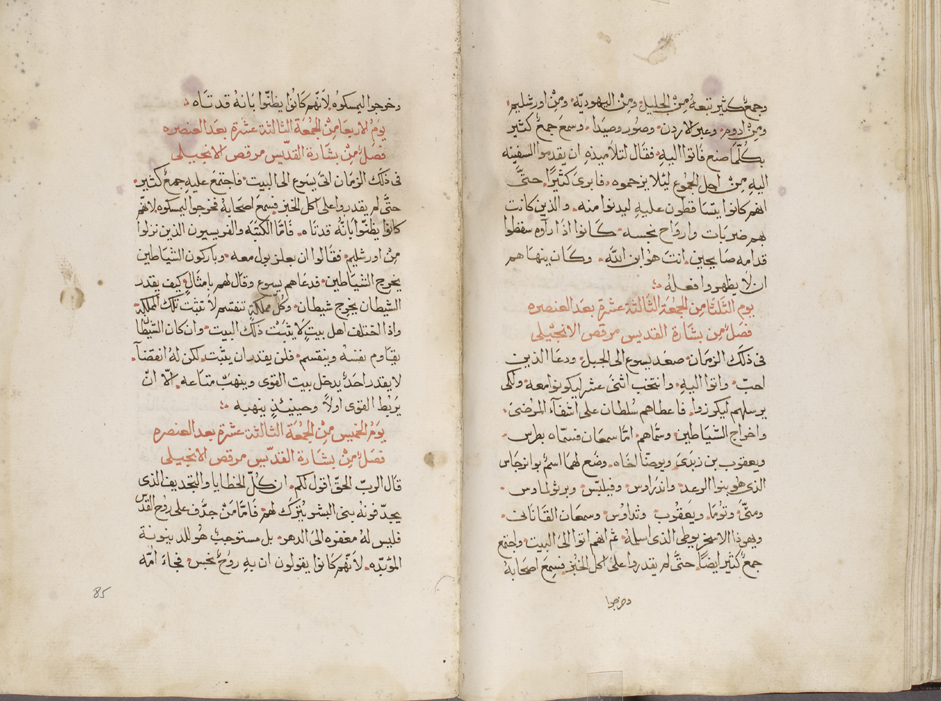 وجمع كثير تبعه من الجليل ومن اليهوديّة ومن اورشليم
ومن ادوم وعبر الاردن وصور وصيدا وسمع جمع كثير
بكلما صنع فاتوا اليه فقال لتلاميذه ان يقدموا السفينه
اليه من اجل الجموع ليلا يزحموه فابرى كثيرًا حتىّ
انهم كانوا يتساقطون عليه ليدنوا منه والذين كانت
بهم ضربات وارواح نجسه كانوا اذا رآوه سقطوا
قدامه صايحين انت هو ابن الله وكان ينهاهم
ان لا يظهروا فعله
يوم الثلثا من الجمعة الثالثة عشرة بعد العنصره
فصل من بشارة القديس مرقص الانجيلى
فى ذلك الزمان صعد يسوع الى الجبل ودعا الذين
احبّ واتوا اليه وانتخب اثنى عشر ليكونوا معه ولكى
يرسلهم ليكرزوا فاعطاهم سُلطان على اشفآء المرضى
واخراج الشياطين وسماهم امّا سمعان فسمّاه بطرس
ويعقوب بن زبدى ويوحنا اخاه وضع لهما اسم بوانرجاس
الذى هو بنوا الرعد واندراوس وفيلبس وبرثولماوس
ومتى وتوما ويعقوب وتداوس وسمعان القانانى
ويهوذا الاسخريوطى الذى اسلمه ثم انهم اتوا الى البيت واجتمع
جمع كثير ايضًا حتىّ لم يقدروا على اكل الخبز فسمع اصحابه
وخرجوا
وخرجوا ليمسكوه لانهم كانوا يظنّوا بانه قد تاه
يوم الاربعا من الجمعة الثالثة عشرة بعد العنصره
فصل من بشارة القديس مرقص الانجيلى
فى ذلك الزمان اتى يسوع الى البيت فاجتمع عليه جمع كثير
حتّى لم يقدروا على اكل الخبز فسمع اصحابه فخرجوا ليمسكوه لانهم
كانوا يظنّوا بانه قد تاه فامّا الكتبه والفريسيون الذين نزلوا
من اورشليم فقالوا ان بعلزبول معه وباركون الشياطين
يخرج الشياطين فدعاهم يسوع وقال لهم بامثال كيف يقدر
الشيطان يخرج شيطان وكل مملكة تنقسم لا تثبت تلك المملكة
واذا اختلف اهل بيت لا يثبت ذلك البيت وان كان الشيطا
يقاوم نفسه وينقسم فلن يقدر ان يثبت لكن له انقضآء
لا يقدر احد يدخل بيت القوى وينهب متاعه الاّ انّ
يربط القوى اولاً وحينيذٍ ينهبه
يوم الخميس من الجمعة الثالثة عشرة بعد العنصره
فصل من بشارة القديس مرقص الانجيلى
قال الرب الحق اقول لكم ان كل الخطايا والتجديف الذى
يجدّفونه بنى البشر يُترك لهم فامّا من جدّف على روح القدس
فليس له مغفره الى الدهر بل مستوجب هو للدينونة
المؤبّده لانّهم كانوا يقولون ان به روح نجس فجاء امّه
85